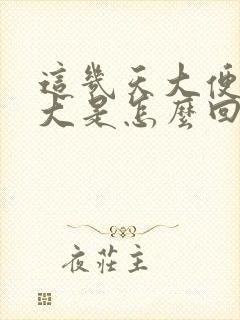 這幾天大便
大是怎麼回
夜莊主